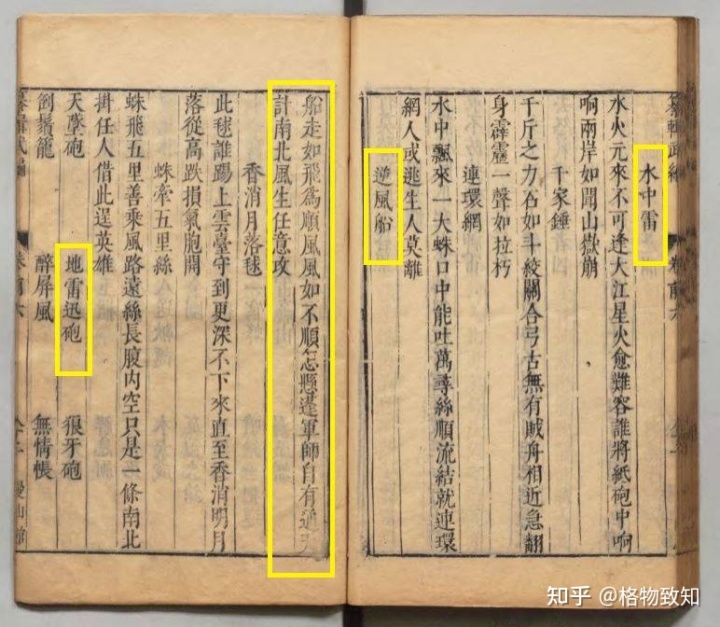 水中雷
水火元來不可逢大江星火愈難容誰將紙砲中响
响兩岸如聞山嶽崩
千家錘
千斤之力石如斗絞關合弓古無有賊舟相近急翻
身霹靂一聲如拉朽
連環網
水中飄來一大蛛口中能吐萬尋絲順流結就連環
網人或逃生人莫離
逆風船
船走如飛為順風風如不順怎懸違軍師自有通天
計南北風生任意攻
香消月落毬
此毬誰踢上雲臺守到更深不下來直至香消明月
落從高跌損氣胞開
蛛牽五里絲
蛛飛五里善乘風路遠絲長腹内空只是一條南北
掛任人借此逞英雄
天墬砲 地雷迅砲 狼牙砲
劄鬚籠 醉屏風 無情帳
卷前六
曼山館
知乎 @格物致知